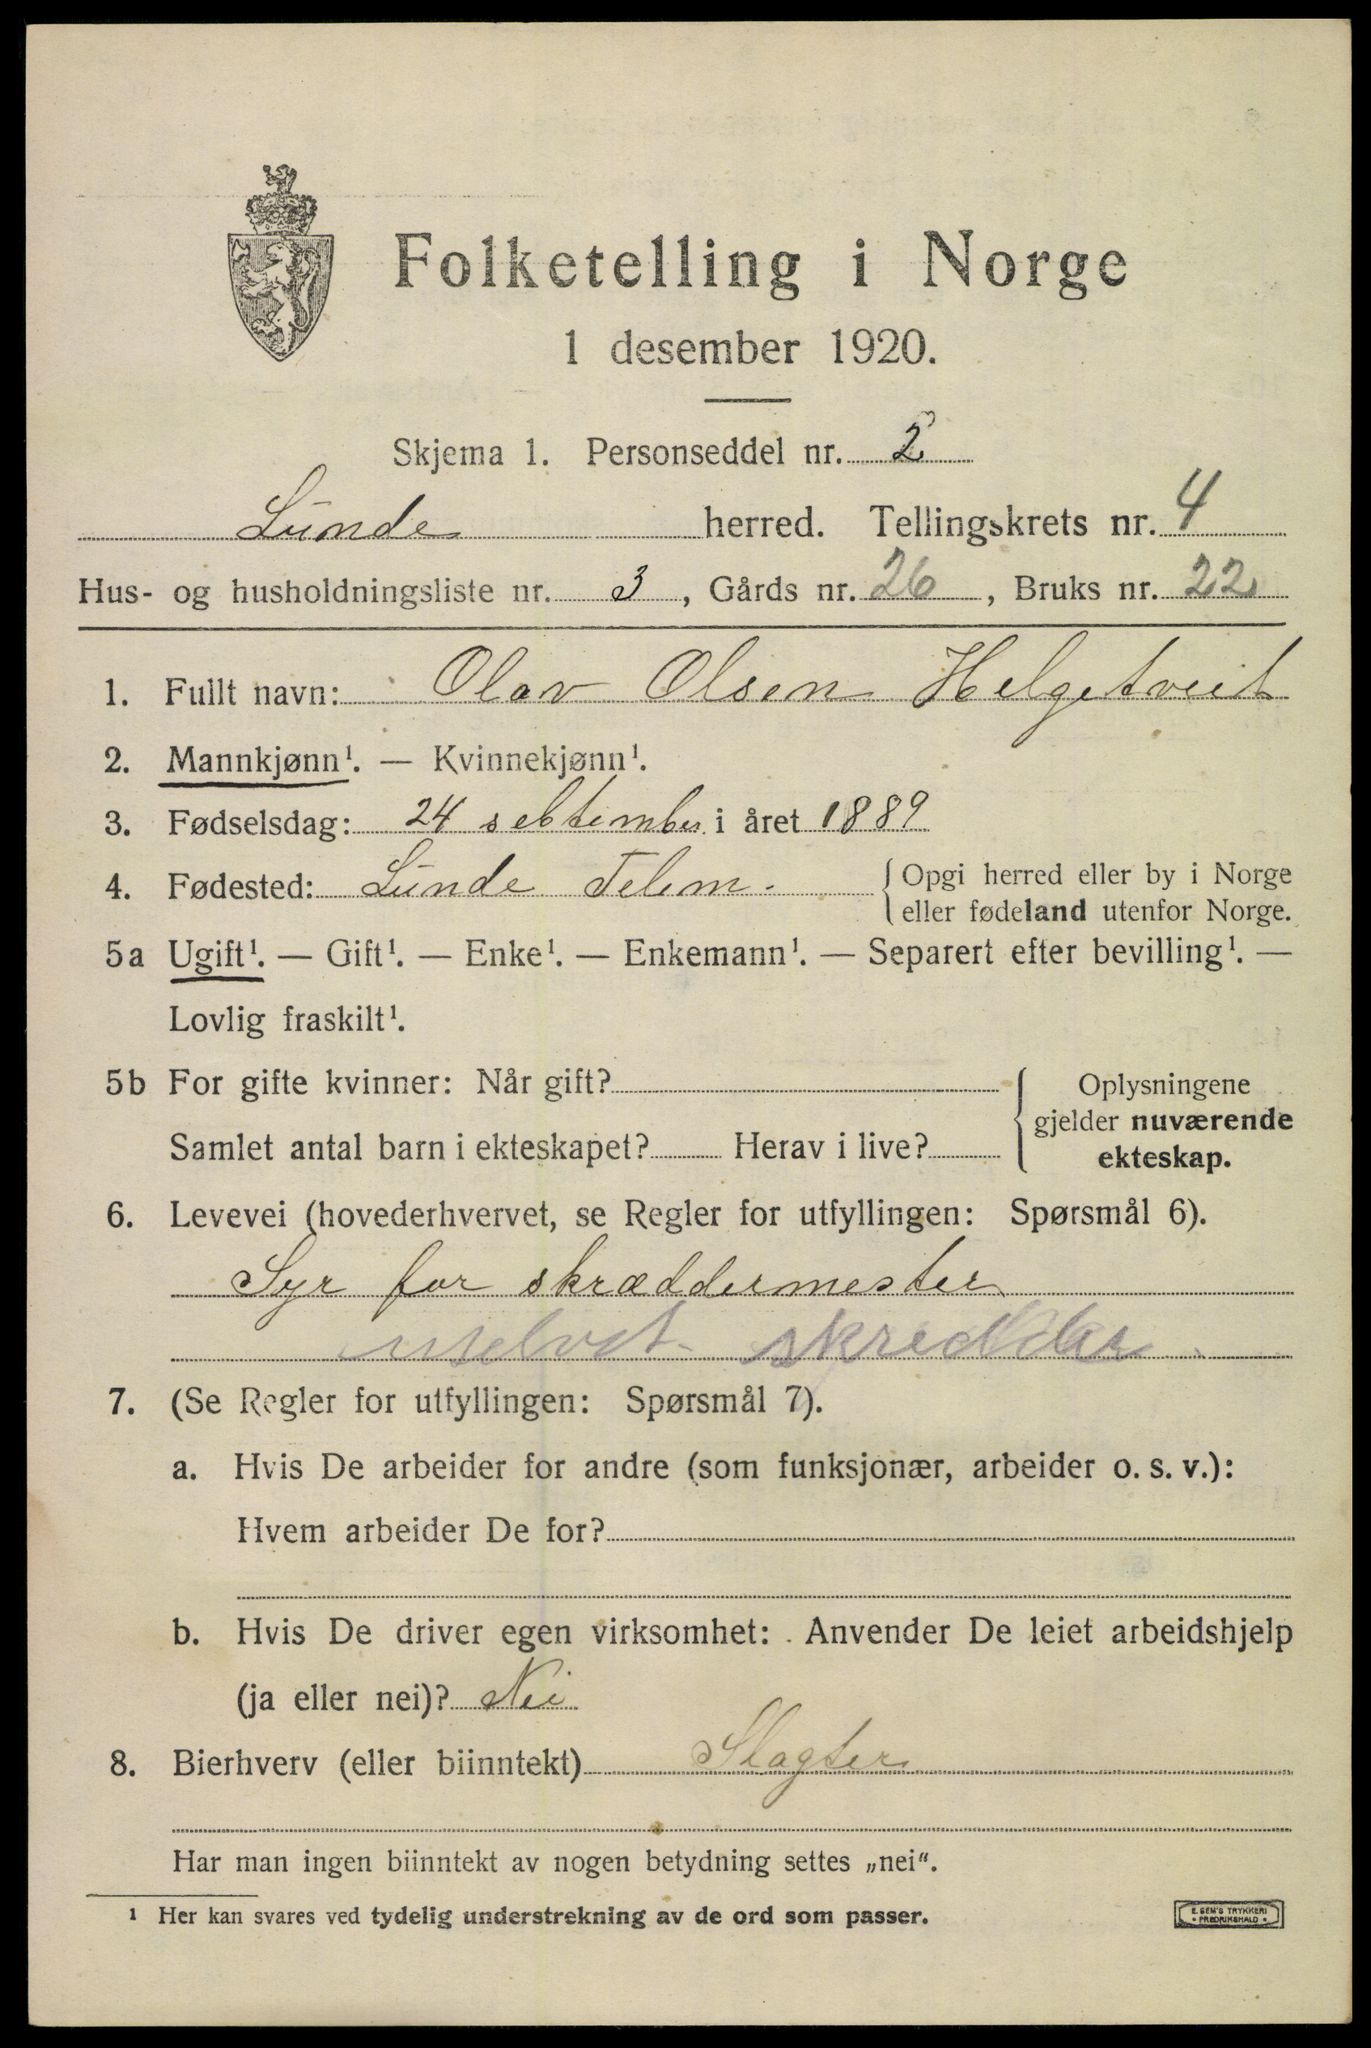 Folketelling i Norge
1 desember 1920.
Skjema 1. Personseddel nr. 2
Lunde herred. Tellingskrets nr. 4
Hus- og husholdningsliste nr. 3, Gårds nr. 26, Bruks nr. 22
1. Fullt navn: Olav Olsen Helgetveit
2. Mannkjønn¹. — Kvinnekjønn¹.
3. Fødselsdag: 24 sebtember i året 1889
4. Fødested: Lunde Telem. { Opgi herred eller by i Norge
eller fødeland utenfor Norge.
5a Ugift¹. — Gift¹. — Enke¹. — Enkemann¹. — Separert efter bevilling¹. —
Lovlig fraskilt¹.
5b For gifte kvinner: Når gift? { Oplysningene
gjelder nuværende
Samlet antal barn i ekteskapet? Herav i live?
ekteskap.
6. Levevei (hovederhvervet, se Regler for utfyllingen: Spørsmål 6).
Syr for skræddermester
skredder
7. (Se Regler for utfyllingen: Spørsmål 7).
a. Hvis De arbeider for andre (som funksjonær, arbeider o. s. v.):
Hvem arbeider De for?
b. Hvis De driver egen virksomhet: Anvender De leiet arbeidshjelp
(ja eller nei)? Nei
8. Bierhverv (eller biinntekt) Slagter
Har man ingen biinntekt av nogen betydning settes „nei“.
¹ Her kan svares ved tydelig understrekning av de ord som passer.
E. SEM'S TRYKKERI
• FREDRIKSHALD •